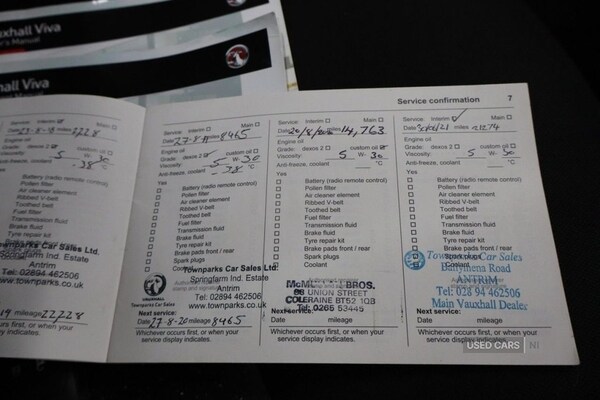 uxhall Viva
r's Manual
hall Viva
Manual
Service confirmation 7
Service: Interim Main
Date 27-8-19 miles 22228
Engine oil
Grade: dexos 2 custom oil
Viscosity: 5 W- 30
Anti-freeze, coolant -38 °C
Yes
Battery (radio remote control)
Pollen filter
Air cleaner element
Ribbed V-belt
Toothed belt
Fuel filter
Transmission fluid
Brake fluid
Tyre repair kit
Brake pads front / rear
Spark plugs
Coolant
townparks Car Sales Ltd.
Springfarm Ind. Estate
Antrim
Tel: 02894 462506
townparks.co.uk
19 mileage 22228
urs first, or when your
ndicates.
Service: Interim Main
Date 27-8- miles 8465
Engine oil
Grade: dexos 2 custom oil
Viscosity: 5 W- 30
Anti-freeze, coolant -38 °C
Yes
Battery (radio remote control)
Pollen filter
Air cleaner element
Ribbed V-belt
Toothed belt
Fuel filter
Transmission fluid
Brake fluid
Tyre repair kit
Brake pads front / rear
Spark plugs
Coolant
Townparks Car Sales Ltd.
Springfarm Ind. Estate
Antrim
VAUXHALL
Townparks Car Sales
Tel: 02894 462506
www.townparks.co.uk
Next service:
Date 27-8-20 mileage 8465
Whichever occurs first, or when your
service display indicates.
Service: Interim Main
Date miles 14,763
Engine oil
Grade: dexos 2 custom oil
Viscosity: 5 W- 30
Anti-freeze, coolant °C
Yes
Battery (radio remote control)
Pollen filter
Air cleaner element
Ribbed V-belt
Toothed belt
Fuel filter
Transmission fluid
Brake fluid
Tyre repair kit
Brake pads front / rear
Spark plugs
Coolant
BROS.
UNION STREET
COLERAINE BT52 1QB
Tel. 0265 53445
Next service:
Date mileage
Whichever occurs first, or when your
service display indicates.
Service: Interim Main
Date miles
Engine oil
Grade: dexos 2 custom oil
Viscosity: 5 W- 30
Anti-freeze, coolant °C
Yes
Battery (radio remote control)
Pollen filter
Air cleaner element
Ribbed V-belt
Toothed belt
Fuel filter
Transmission fluid
Brake fluid
Tyre repair kit
Brake pads front / rear
Spark plugs
Coolant
Townparks Car Sales
Ballymena Road
ANTRIM
Tel: 028 94 462506
Main Vauxhall Dealer
Next service:
Date mileage
Whichever occurs first, or when your
service display indicates.
USED CARS NI